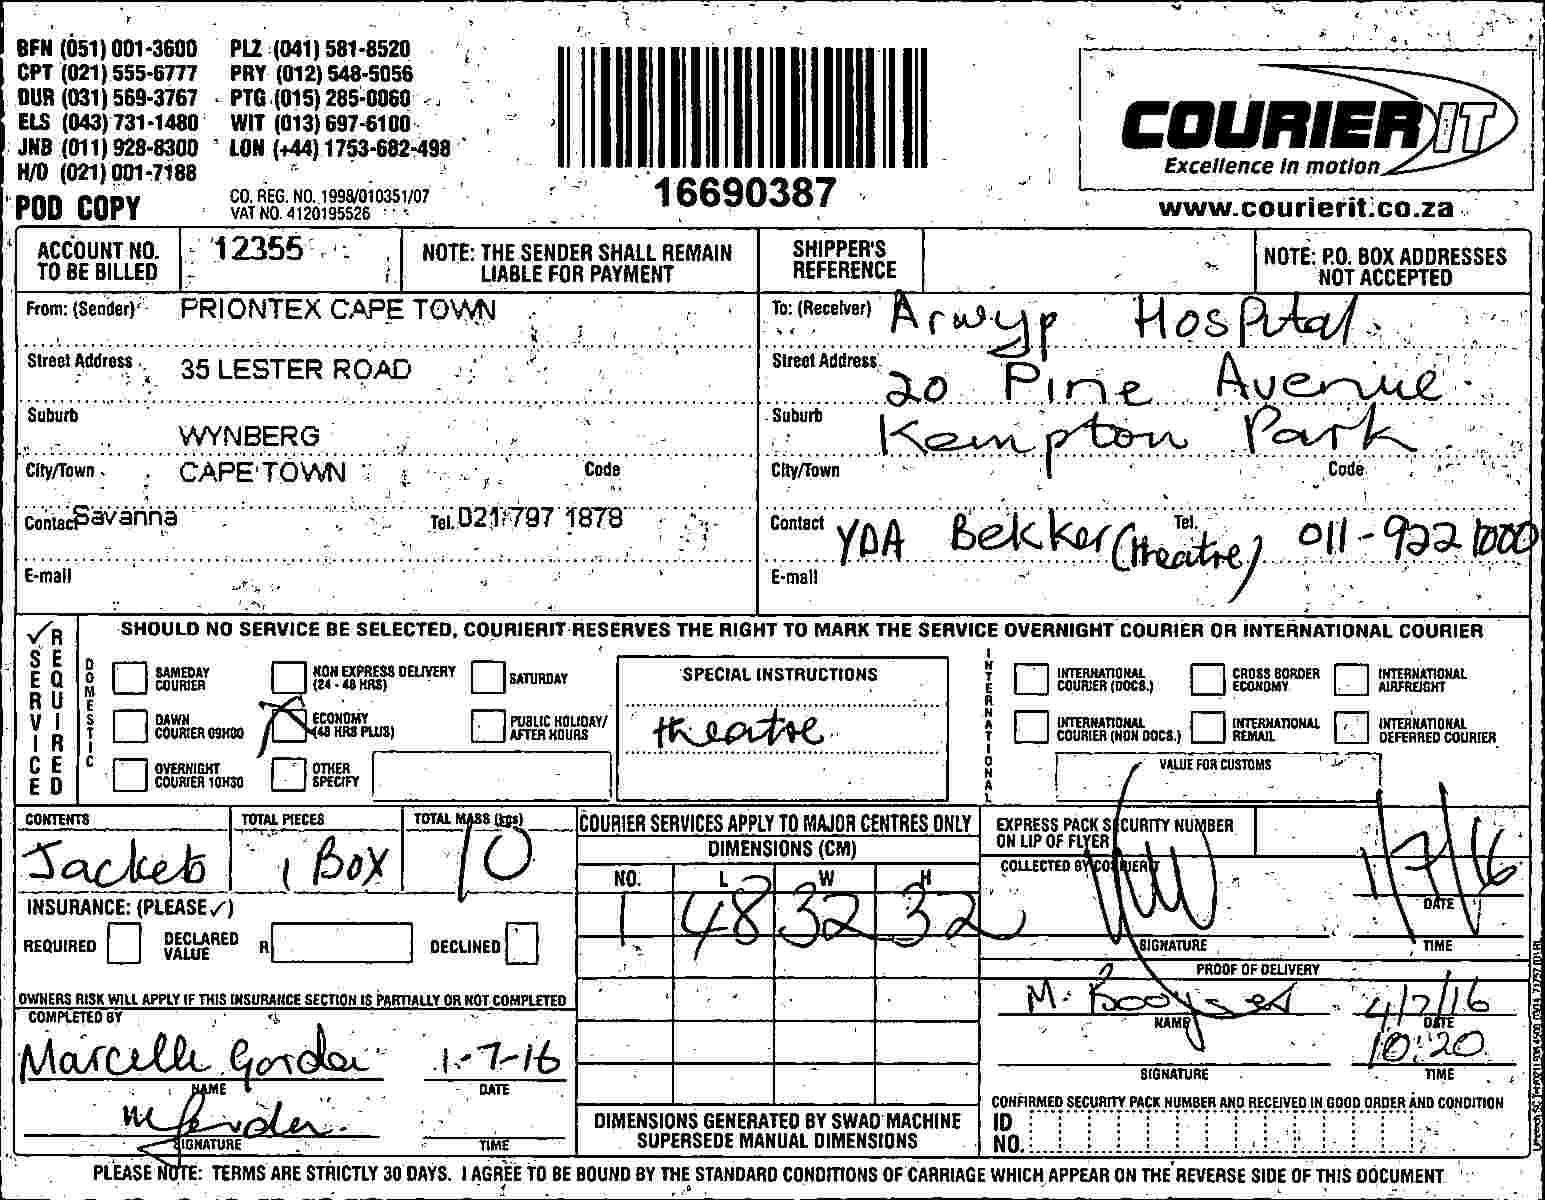 BFN (051) 001-3600 PLZ (041) 581-8520
CPT (021) 555-6777 PRY (012) 548-5056
DUR (031) 569-3767 PTG (015) 285-0060
ELS (043) 731-1480 WIT (013) 697-6100
JNB (011) 928-8300 LON (+44) 1753-682-498
H/O (021) 001-7188
POD COPY
CO. REG. NO. 1998/010351/07
VAT NO. 4120195526
16690387
COURIER IT
Excellence in motion
www.courierit.co.za
ACCOUNT NO. TO BE BILLED 12355
NOTE: THE SENDER SHALL REMAIN LIABLE FOR PAYMENT
SHIPPER'S REFERENCE
NOTE: P.O. BOX ADDRESSES NOT ACCEPTED
From: (Sender) PRIONTEX CAPE TOWN
Street Address 35 LESTER ROAD
Suburb WYNBERG
City/Town CAPE TOWN Code
Contact Savanna Tel. 021 797 1878
E-mail
To: (Receiver) Arwyp Hospital
Street Address 20 Pine Avenue
Suburb Kempton Park
City/Town Code
Contact YDA Bekker (theatre) Tel. 011-922 1000
E-mail
SERVICE REQUIRED
SHOULD NO SERVICE BE SELECTED, COURIERIT RESERVES THE RIGHT TO MARK THE SERVICE OVERNIGHT COURIER OR INTERNATIONAL COURIER
DOMESTIC
SAMEDAY COURIER
NON EXPRESS DELIVERY (24 - 48 HRS)
SATURDAY
DAWN COURIER 09H00
ECONOMY (48 HRS PLUS)
PUBLIC HOLIDAY/ AFTER HOURS
OVERNIGHT COURIER 10H30
OTHER SPECIFY
SPECIAL INSTRUCTIONS
theatre
INTERNATIONAL
INTERNATIONAL COURIER (DOCS.)
CROSS BORDER ECONOMY
INTERNATIONAL AIRFREIGHT
INTERNATIONAL COURIER (NON DOCS.)
INTERNATIONAL REMAIL
INTERNATIONAL DEFERRED COURIER
VALUE FOR CUSTOMS
CONTENTS TOTAL PIECES TOTAL MASS (kgs)
Jackets 1 Box 10
INSURANCE: (PLEASE ✓)
REQUIRED DECLARED VALUE R DECLINED
OWNERS RISK WILL APPLY IF THIS INSURANCE SECTION IS PARTIALLY OR NOT COMPLETED
COMPLETED BY
Marcelle 1-7-16
NAME DATE
SIGNATURE TIME
COURIER SERVICES APPLY TO MAJOR CENTRES ONLY
DIMENSIONS (CM)
NO. L W H
1 48 32 32
DIMENSIONS GENERATED BY SWAD MACHINE SUPERSEDE MANUAL DIMENSIONS
EXPRESS PACK SECURITY NUMBER ON LIP OF FLYER
COLLECTED BY COURIERIT
1/7/16
DATE
SIGNATURE TIME
PROOF OF DELIVERY
M. Booysen 4/7/16
NAME DATE
10:20
SIGNATURE TIME
CONFIRMED SECURITY PACK NUMBER AND RECEIVED IN GOOD ORDER AND CONDITION
ID NO.
PLEASE NOTE: TERMS ARE STRICTLY 30 DAYS. I AGREE TO BE BOUND BY THE STANDARD CONDITIONS OF CARRIAGE WHICH APPEAR ON THE REVERSE SIDE OF THIS DOCUMENT